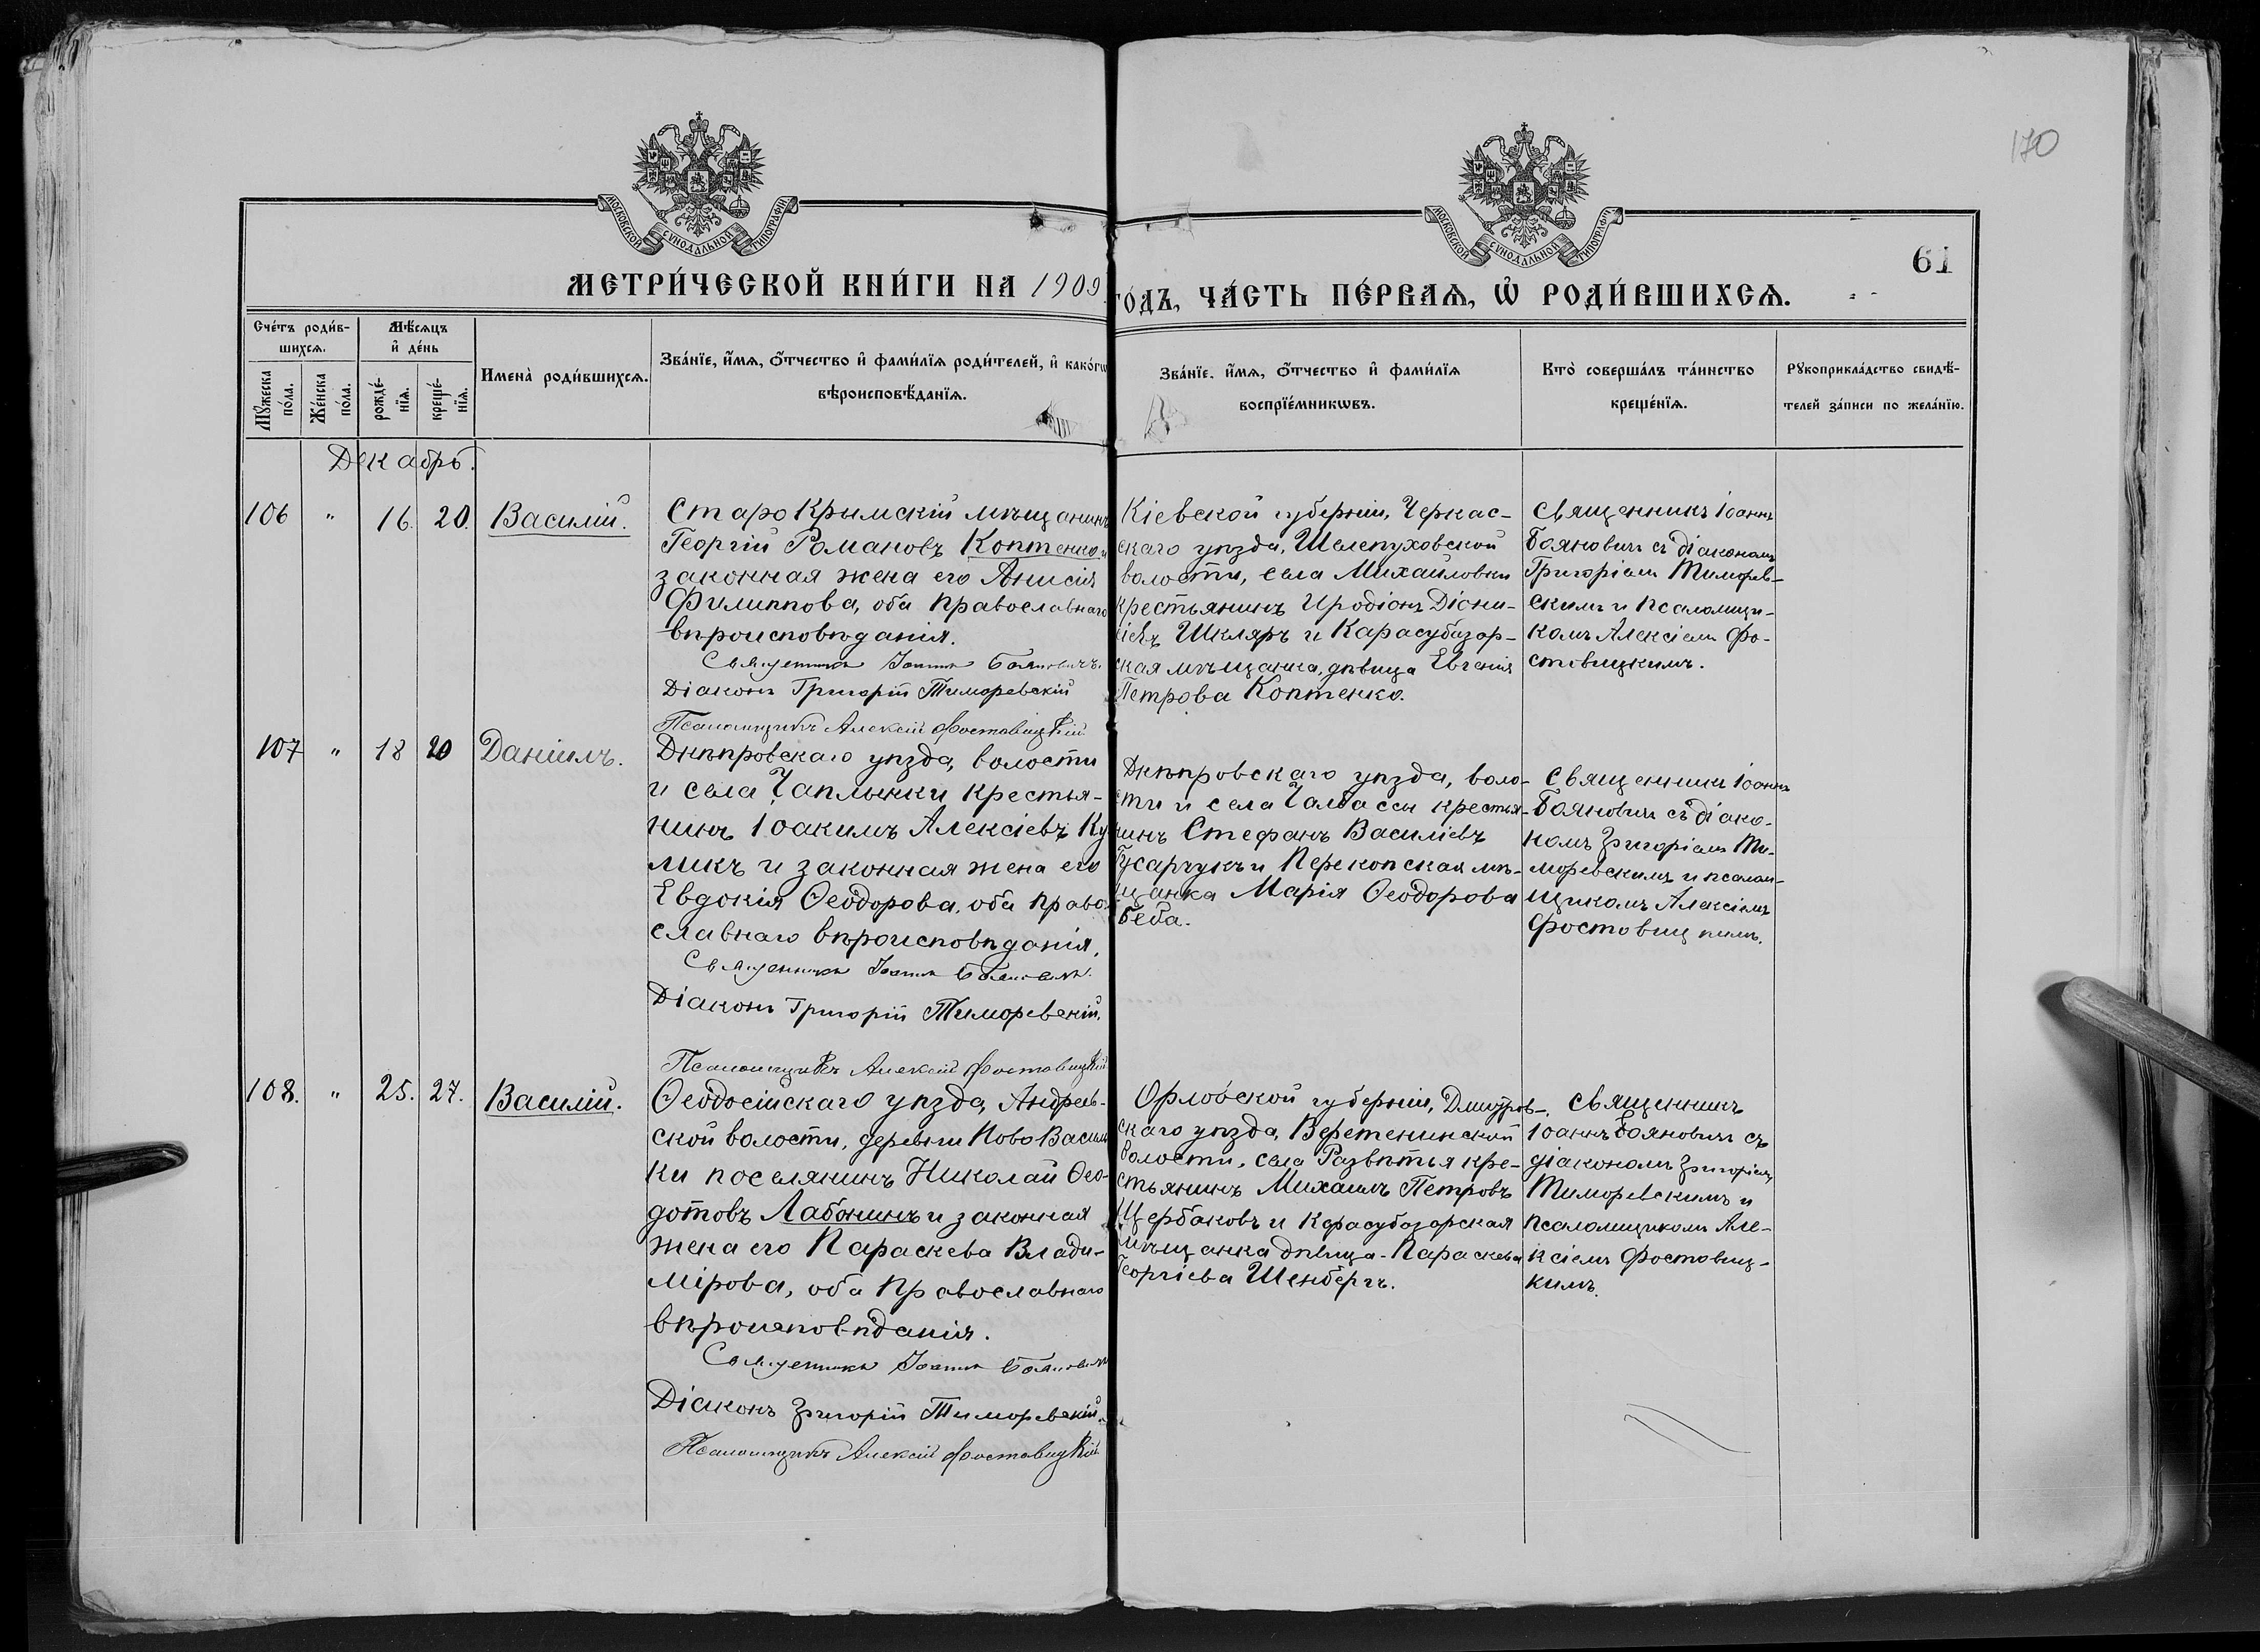 170
МОСКОВСКОЙ СУНОДАЛЬНОЙ ТИПОГРАФІИ
МОСКОВСКОЙ СУНОДАЛЬНОЙ ТИПОГРАФІИ
61
МЕТРИ́ЧЕСКОЙ КНИ́ГИ НА 1909
ГО́ДЪ, ЧА́СТЬ ПЕ́РВАѦ, Ѽ РОДИ́ВШИХСѦ.
Сче́тъ роди́в-
шихсѧ.
Мꙋ́жеска по́ла.
Же́нска по́ла.
Мѣ́сѧцъ
и҆ де́нь
рожде́-
нїѧ.
креще́-
нїѧ.
Имена̀ роди́вшихсѧ.
Зва́нїе, и҆́мѧ, ѻ҆́тчество и҆ фами́лїѧ роди́телей, и҆ како́гѡ
вѣроисповѣ́данїѧ.
Зва́нїе, и҆́мѧ, ѻ҆́тчество и҆ фами́лїѧ
воспрїе́мникѡвъ.
Кто̀ соверша́лъ та́инство
креще́нїѧ.
Рꙋкоприкла́дство свидѣ́-
телей за́писи по жела́нїю.
Декабрь.
106 " 16. 20. Василій.
Старо Крымскій мѣщанинъ
Георгій Романовъ Коптенко и
законная жена его Анисія
Филиппова, оба православнаго
вѣроисповѣданія.
Священникъ Іоаннъ Бояновичъ.
Діаконъ Григорій Тиморевскій
Псаломщикъ Алексій Фостовицкій
Кіевской губерніи, Черкас-
скаго уѣзда, Шелепуховской
волости, села Михайловки
крестьянинъ Иродіонъ Діони-
сіевъ Шкляръ и Карасубазар-
ская мѣщанка, дѣвица Евгенія
Петрова Коптенко.
Священникъ Іоаннъ
Бояновичъ съ діакономъ
Григоріемъ Тиморев-
скимъ и псаломщи-
комъ Алексіемъ Фо-
стовицкимъ.
107 " 18 20 Даніилъ.
Днѣпровскаго уѣзда, волости
и села Чаплынки крестья-
нинъ Іоакимъ Алексіевъ Ку
ликъ и законная жена его
Евдокія Ѳеодорова, оба право
славнаго вѣроисповѣданія.
Священникъ Іоаннъ Бояновичъ.
Діаконъ Григорій Тиморевскій.
Псаломщикъ Алексій Фостовицкій
Днѣпровскаго уѣзда, воло-
сти и села Чалбассы крестья-
нинъ Стефанъ Василіевъ
Гусарчукъ и Перекопская мѣ-
щанка Марія Ѳеодорова
Беба.
Священникъ Іоаннъ
Бояновичъ съ діако-
номъ Григоріемъ Ти-
моревскимъ и псалом-
щикомъ Алексіемъ
Фостовицкимъ.
108. " 25. 27. Василій.
Ѳеодосійскаго уѣзда, Андреев-
ской волости, деревни Ново Васил
ки поселянинъ Николай Ѳео-
дотовъ Лабонинъ и законная
жена его Параскева Влади-
мірова, оба православнаго
вѣроисповѣданія.
Священникъ Іоаннъ Бояновичъ
Діаконъ Григорій Тиморевскій.
Псаломщикъ Алексій Фостовицкій
Орловской губерніи, Дмитров-
скаго уѣзда, Веретенинской
волости, села Развѣтья кре-
стьянинъ Михаилъ Петровъ
Щербаковъ и Карасубазарская
мѣщанка дѣвица Параскева
Георгіева Шенбергъ.
Священникъ
Іоаннъ Бояновичъ съ
діакономъ Григоріемъ
Тиморевскимъ и
псаломщикомъ Але-
ксіемъ Фостовиц-
кимъ.